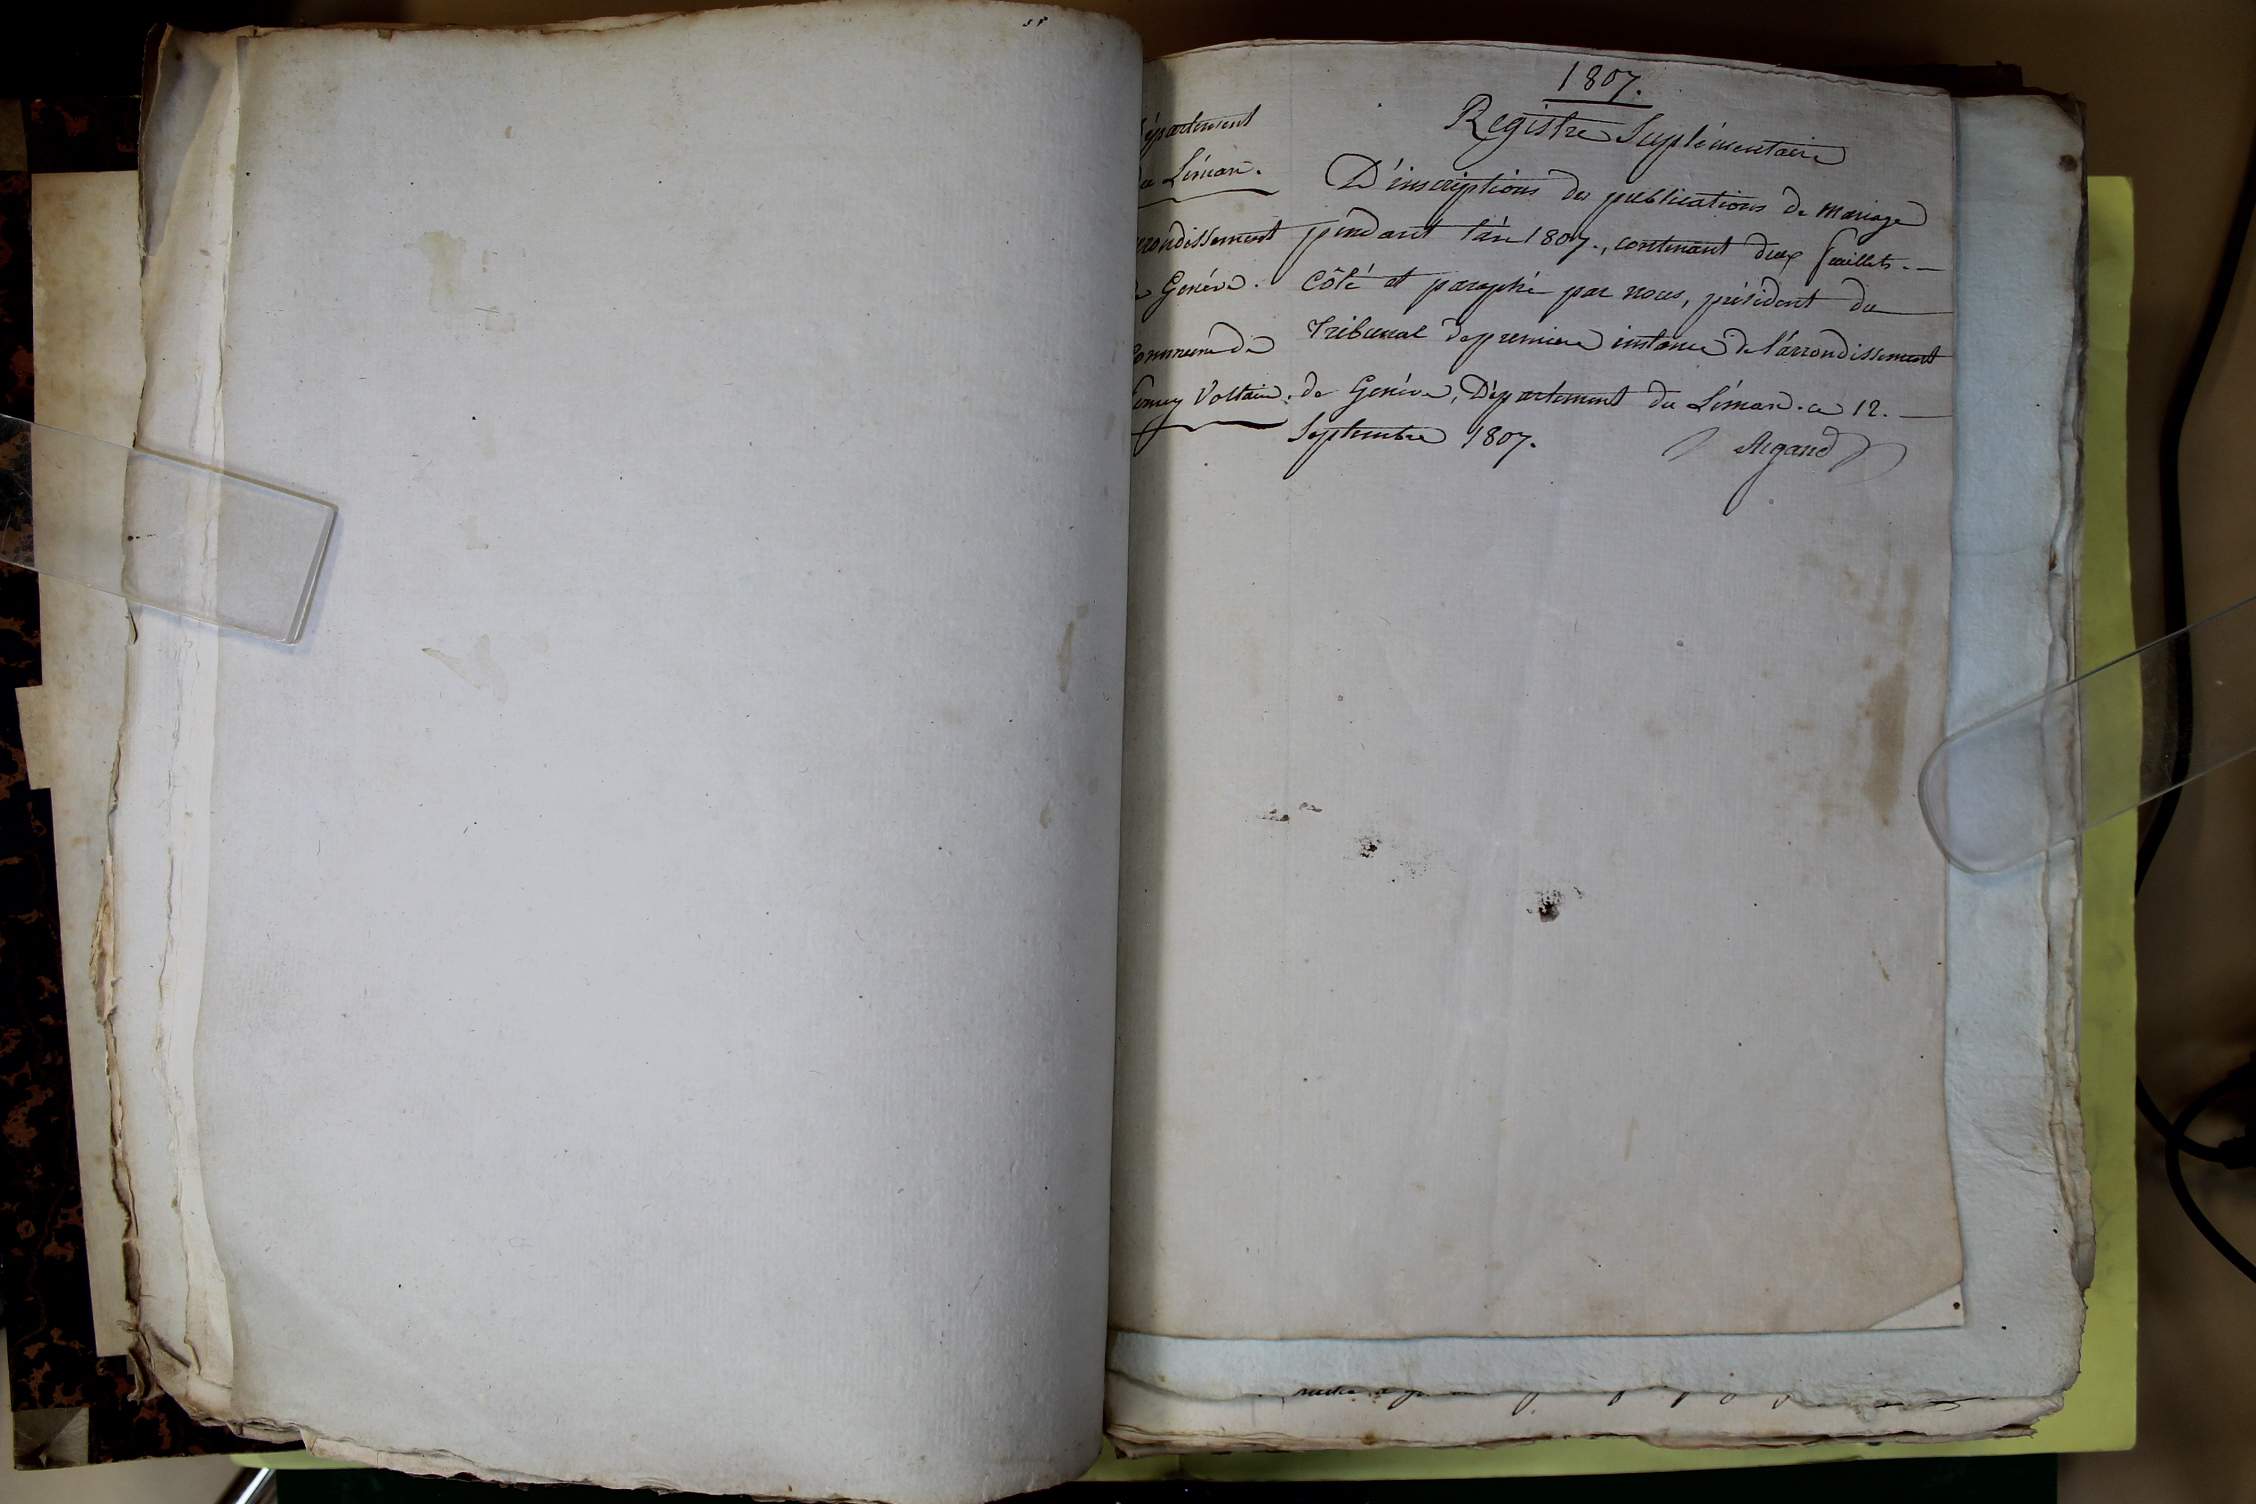 1807.
Registre Suplémentaire
D'inscriptions des publications de mariage
pendant l'an 1807., contenant deux feuillets. —
Côté et paraphé par nous, président du
Tribunal de premiere instance de l'arrondissement
de Genève, Département du Léman. ce 12. —
Septembre 1807.
Argand
épartement
du Léman.
rrondissement
de Genève.
Commune de
Ferney Voltaire.